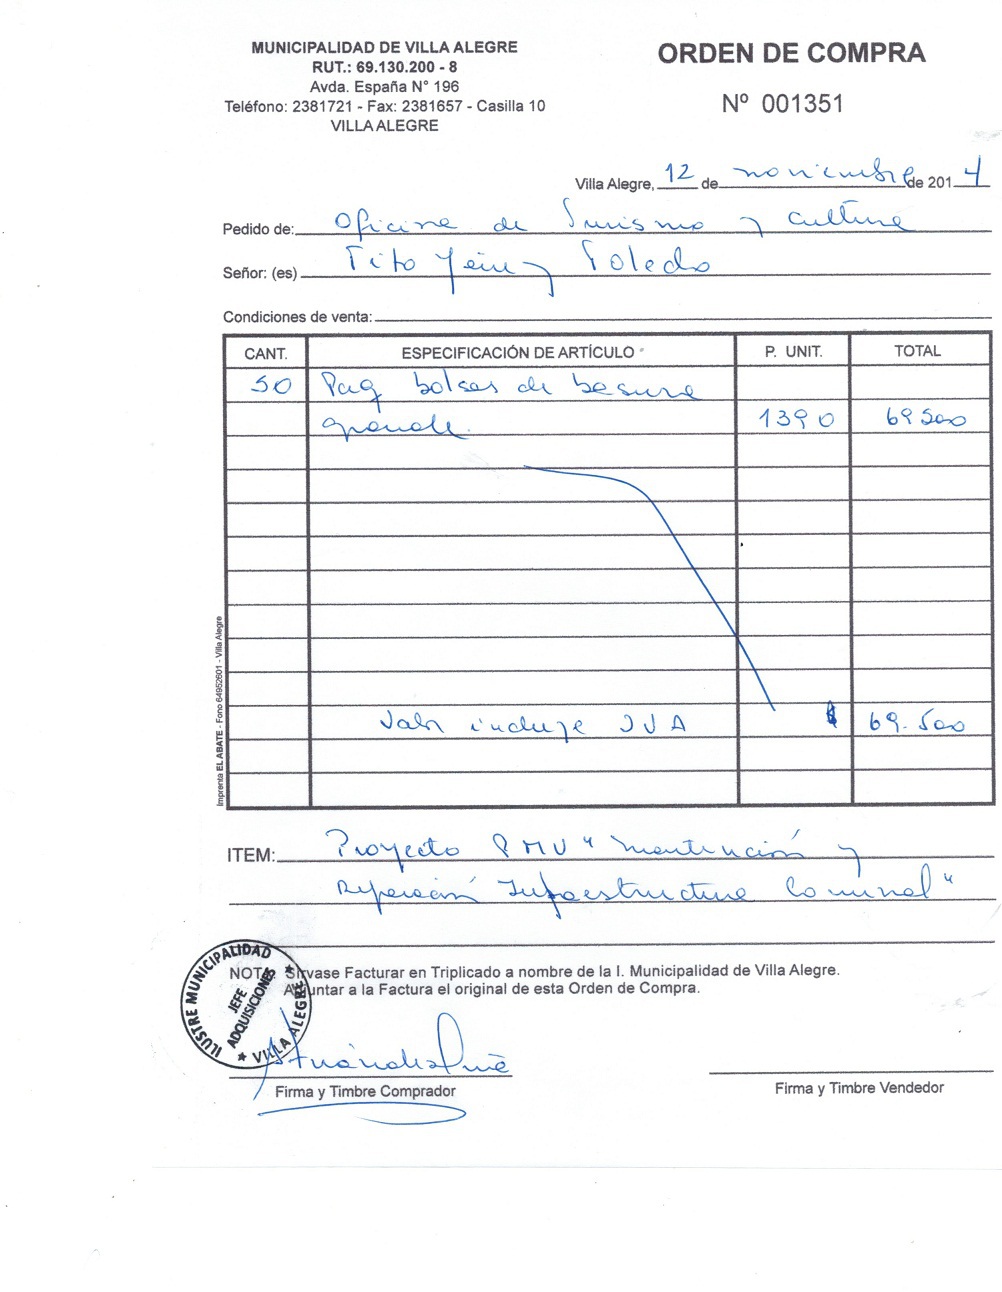 MUNICIPALIDAD DE VILLA ALEGRE
RUT.: 69.130.200 - 8
Avda. España N° 196
Teléfono: 2381721 - Fax: 2381657 - Casilla 10
VILLA ALEGRE
ORDEN DE COMPRA
Nº 001351
Villa Alegre, 12 de noviembre de 2014
Pedido de: Oficina de Turismo y Cultura
Señor: (es) Tito Toledo
Condiciones de venta:
CANT. ESPECIFICACIÓN DE ARTÍCULO P. UNIT. TOTAL
50 Paq bolsas de basura
grande. 1390 69500
Valor incluye IVA $ 69.500
Imprenta EL ABATE - Fono 64952601 - Villa Alegre
ITEM: Proyecto PMU "Mantención y
Reparación Infraestructura Comunal"
NOTA: Sírvase Facturar en Triplicado a nombre de la I. Municipalidad de Villa Alegre.
Adjuntar a la Factura el original de esta Orden de Compra.
ILUSTRE MUNICIPALIDAD
JEFE
ADQUISICIONES
★ VILLA ALEGRE ★
Firma y Timbre Comprador
Firma y Timbre Vendedor